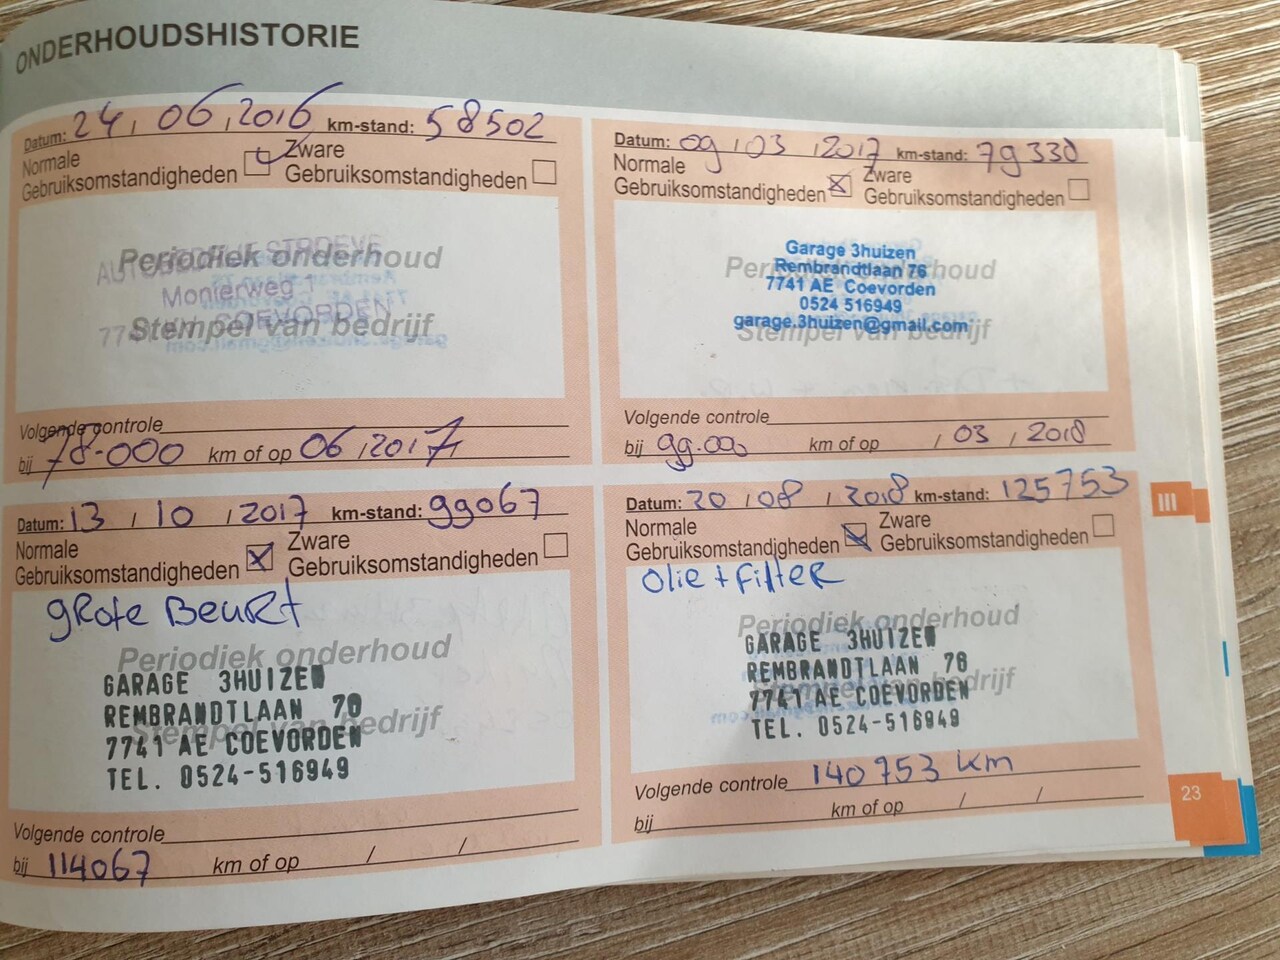 ONDERHOUDSHISTORIE
Datum: 24, 06, 2016 km-stand: 58502
Normale Gebruiksomstandigheden
Zware Gebruiksomstandigheden
Periodiek onderhoud
Monierweg 1
COEVORDEN
Stempel van bedrijf
Volgende controle
bij 78.000 km of op 06, 2017
Datum: 09, 03, 2017 km-stand: 79330
Normale Gebruiksomstandigheden
Zware Gebruiksomstandigheden
Periodiek onderhoud
Garage 3huizen
Rembrandtlaan 76
7741 AE Coevorden
0524 516949
garage.3huizen@gmail.com
Stempel van bedrijf
Volgende controle
bij 99.000 km of op / 03, 2018
Datum: 13, 10, 2017 km-stand: 99067
Normale Gebruiksomstandigheden
Zware Gebruiksomstandigheden
grote Beurt
Periodiek onderhoud
GARAGE 3HUIZEN
REMBRANDTLAAN 76
Stempel van bedrijf
7741 AE COEVORDEN
TEL. 0524-516949
Volgende controle
bij 114067 km of op / /
Datum: 20, 08, 2018 km-stand: 125753
Normale Gebruiksomstandigheden
Zware Gebruiksomstandigheden
Olie + Filter
Periodiek onderhoud
GARAGE 3HUIZEN
REMBRANDTLAAN 76
Stempel van bedrijf
7741 AE COEVORDEN
TEL. 0524-516949
Volgende controle 140753 km
bij km of op / /
III
23